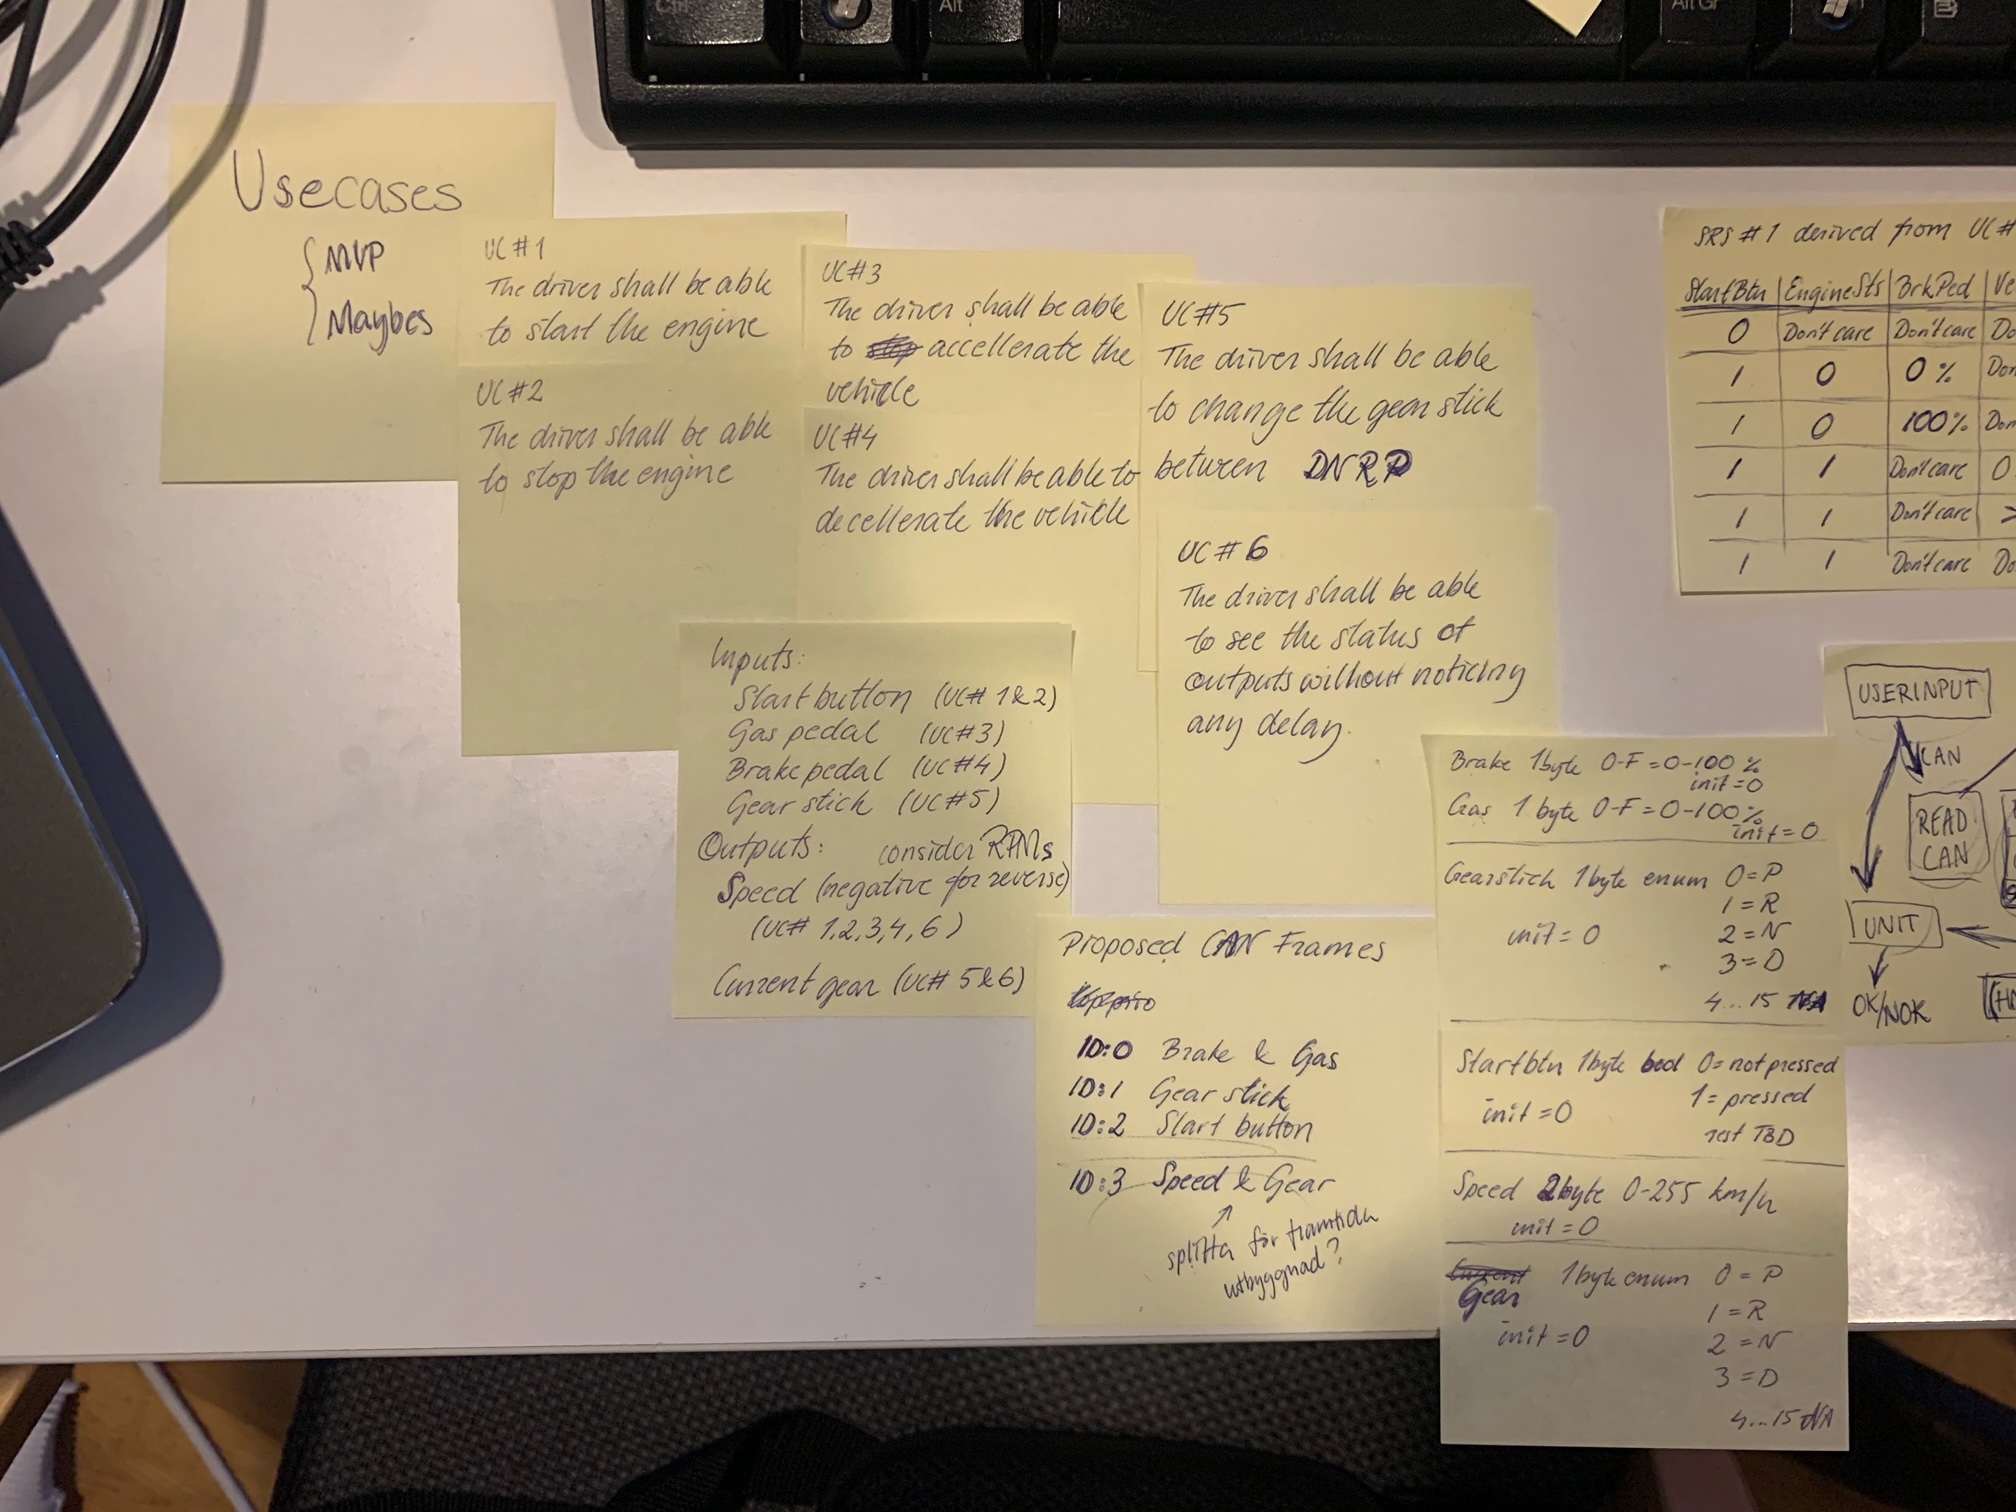 Usecases
{ MVP
Maybes
UC#1
The driver shall be able
to start the engine
UC#2
The driver shall be able
to stop the engine
UC#3
The driver shall be able
to accellerate the
vehicle
UC#4
The driver shall be able to
decellerate the vehicle
UC#5
The driver shall be able
to change the gearstick
between DNRP
UC#6
The driver shall be able
to see the status of
outputs without noticing
any delay.
Inputs:
Startbutton (UC# 1&2)
Gas pedal (UC#3)
Brakepedal (UC#4)
Gear stick (UC#5)
Outputs: consider RPMs
Speed (negative for reverse)
(UC# 1,2,3,4,6)
Current gear (UC# 5&6)
Proposed CAN Frames
ID:0 Brake & Gas
ID:1 Gear stick
ID:2 Start button
ID:3 Speed & Gear
splitta för framtida
utbyggnad?
Brake 1byte 0-F = 0-100%
init=0
Gas 1byte 0-F = 0-100%
init=0
Gearstick 1byte enum 0=P
1=R
init=0 2=N
3=D
4...15
Startbtn 1byte 0=not pressed
init=0 1=pressed
rest TBD
Speed 2byte 0-255 km/h
init=0
Gear 1byte enum 0=P
1=R
init=0 2=N
3=D
4...15
SRS #1 derived from UC#
StartBtn EngineSts BrkPed Ve
0 Don't care Don't care Do
1 0 0% Don
1 0 100% Don
1 1 Don't care 0
1 1 Don't care >
1 1 Don't care Do
USERINPUT
CAN
READ
CAN
UNIT
OK/NOK